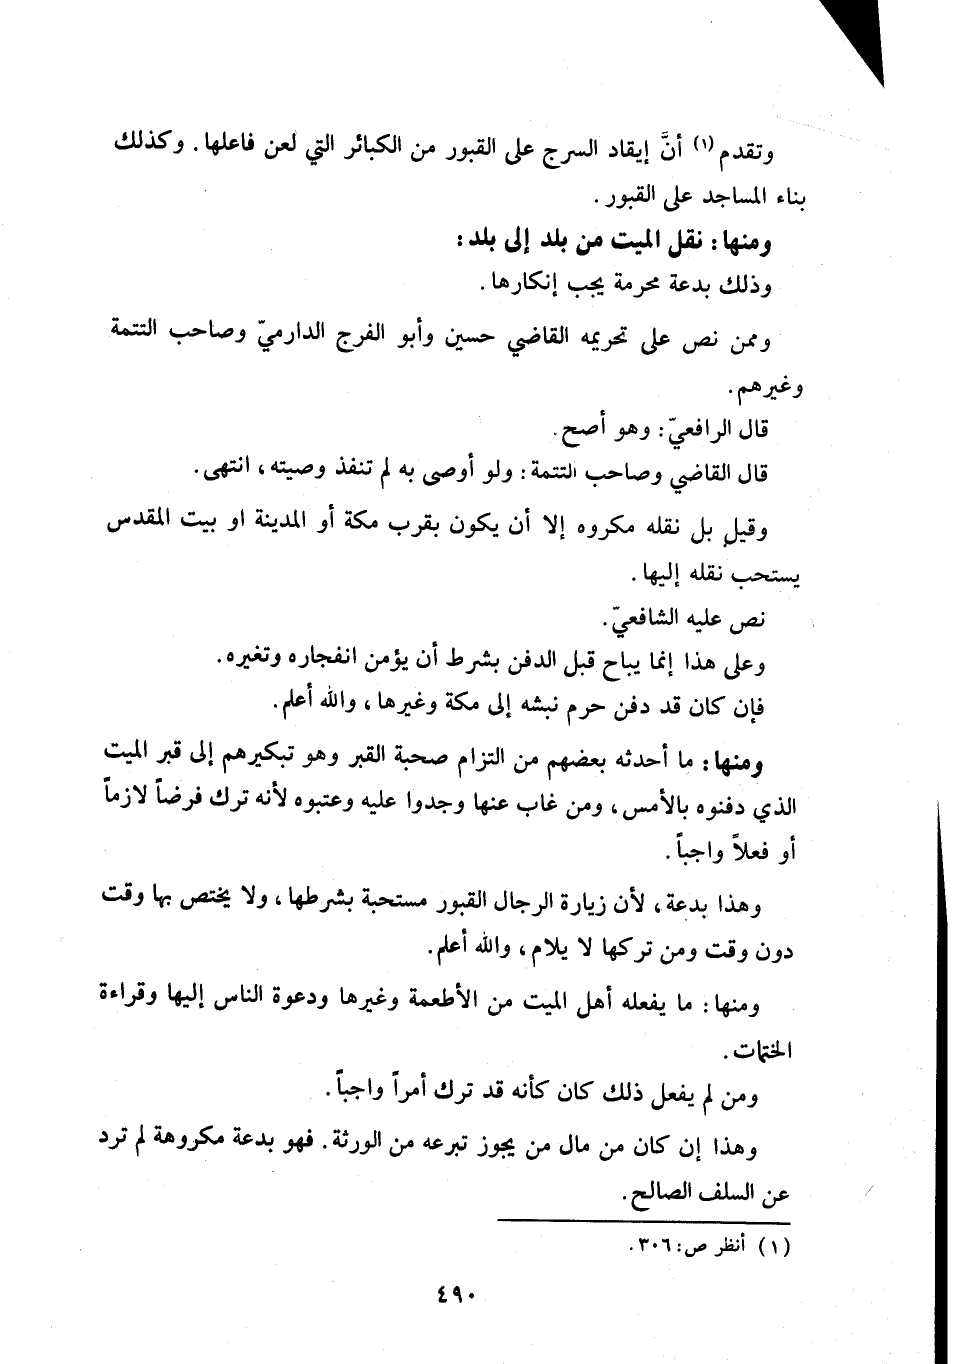 وتقدم(١) أنَّ إيقاد السرج على القبور من الكبائر التي لعن فاعلها. وكذلك
بناء المساجد على القبور.
ومنها: نقل الميت من بلد إلى بلد:
وذلك بدعة محرمة يجب إنكارها.
وممن نص على تحريمه القاضي حسين وأبو الفرج الدارميّ وصاحب التتمة
وغيرهم.
قال الرافعيّ: وهو أصح.
قال القاضي وصاحب التتمة: ولو أوصى به لم تنفذ وصيته، انتهى.
وقيل بل نقله مكروه إلا أن يكون بقرب مكة أو المدينة او بيت المقدس
يستحب نقله إليها.
نص عليه الشافعيّ.
وعلى هذا إنما يباح قبل الدفن بشرط أن يؤمن انفجاره وتغيره.
فإن كان قد دفن حرم نبشه إلى مكة وغيرها، والله أعلم.
ومنها: ما أحدثه بعضهم من التزام صحبة القبر وهو تبكيرهم إلى قبر الميت
الذي دفنوه بالأمس، ومن غاب عنها وجدوا عليه وعتبوه لأنه ترك فرضاً لازماً
أو فعلاً واجباً.
وهذا بدعة، لأن زيارة الرجال القبور مستحبة بشرطها، ولا يختص بها وقت
دون وقت ومن تركها لا يلام، والله أعلم.
ومنها: ما يفعله أهل الميت من الأطعمة وغيرها ودعوة الناس إليها وقراءة
الختمات.
ومن لم يفعل ذلك كان كأنه قد ترك أمراً واجباً.
وهذا إن كان من مال من يجوز تبرعه من الورثة. فهو بدعة مكروهة لم ترد
عن السلف الصالح.
(١) أنظر ص: ٣٠٦.
٤٩٠